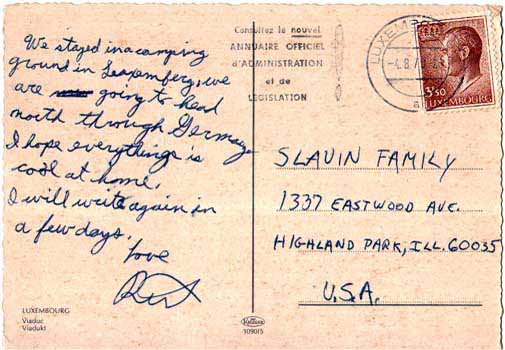 We stayed in a camping
ground in Luxemberg, we
are going to head
north through Germany
I hope everythings is
cool at home.
I will write again in
a few days.
love
LUXEMBOURG
Viaduc
Viadukt
Consultez le nouvel
ANNUAIRE OFFICIEL
d'ADMINISTRATION
et de
LEGISLATION
LUXEMBO
-4.8.7
3F50
LUXEMBOURG
SLAVIN FAMILY
1337 EASTWOOD AVE.
HIGHLAND PARK, ILL. 60035
U.S.A.
1090/5